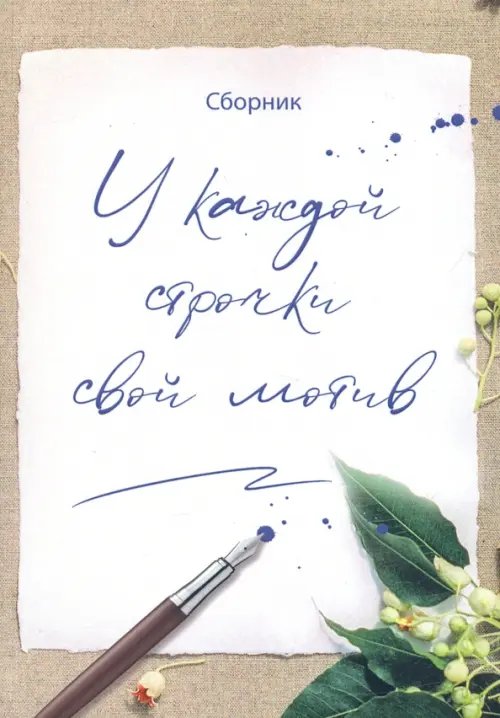 Сборник
У каждой
строчки
свой мотив